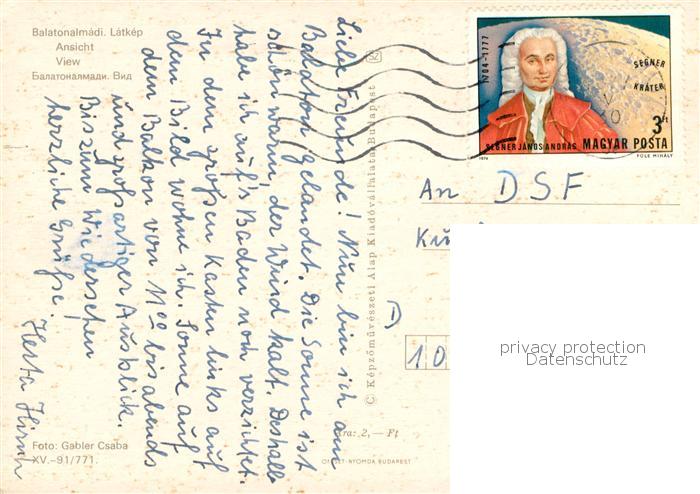 Balatonalmádi. Látkép
Ansicht
View
Балатоналмади. Вид
Liebe Freunde! Nun bin ich am
Balaton gelandet. Die Sonne ist
schön warm, der Wind kalt. Deshalb
habe ich auf's Baden noch verzichtet.
In dem großen Kasten links auf
dem Bild wohne ich. Sonne auf
dem Balkon von 11°° bis abends
und großartiger Ausblick.
Bis zum Wiedersehen
herzliche Grüße.
Herta Hirsch
Foto: Gabler Csaba
XV.–91/771.
© Képzőművészeti Alap Kiadóvállalata, Budapest
Ára: 2,— Ft
OFFSET-NYOMDA BUDAPEST
1704-1777
SEGNER
KRÁTER
3 Ft
SEGNER JÁNOS ANDRÁS MAGYAR POSTA
1974 FÜLE MIHÁLY
An DSF
D
10
privacy protection
Datenschutz